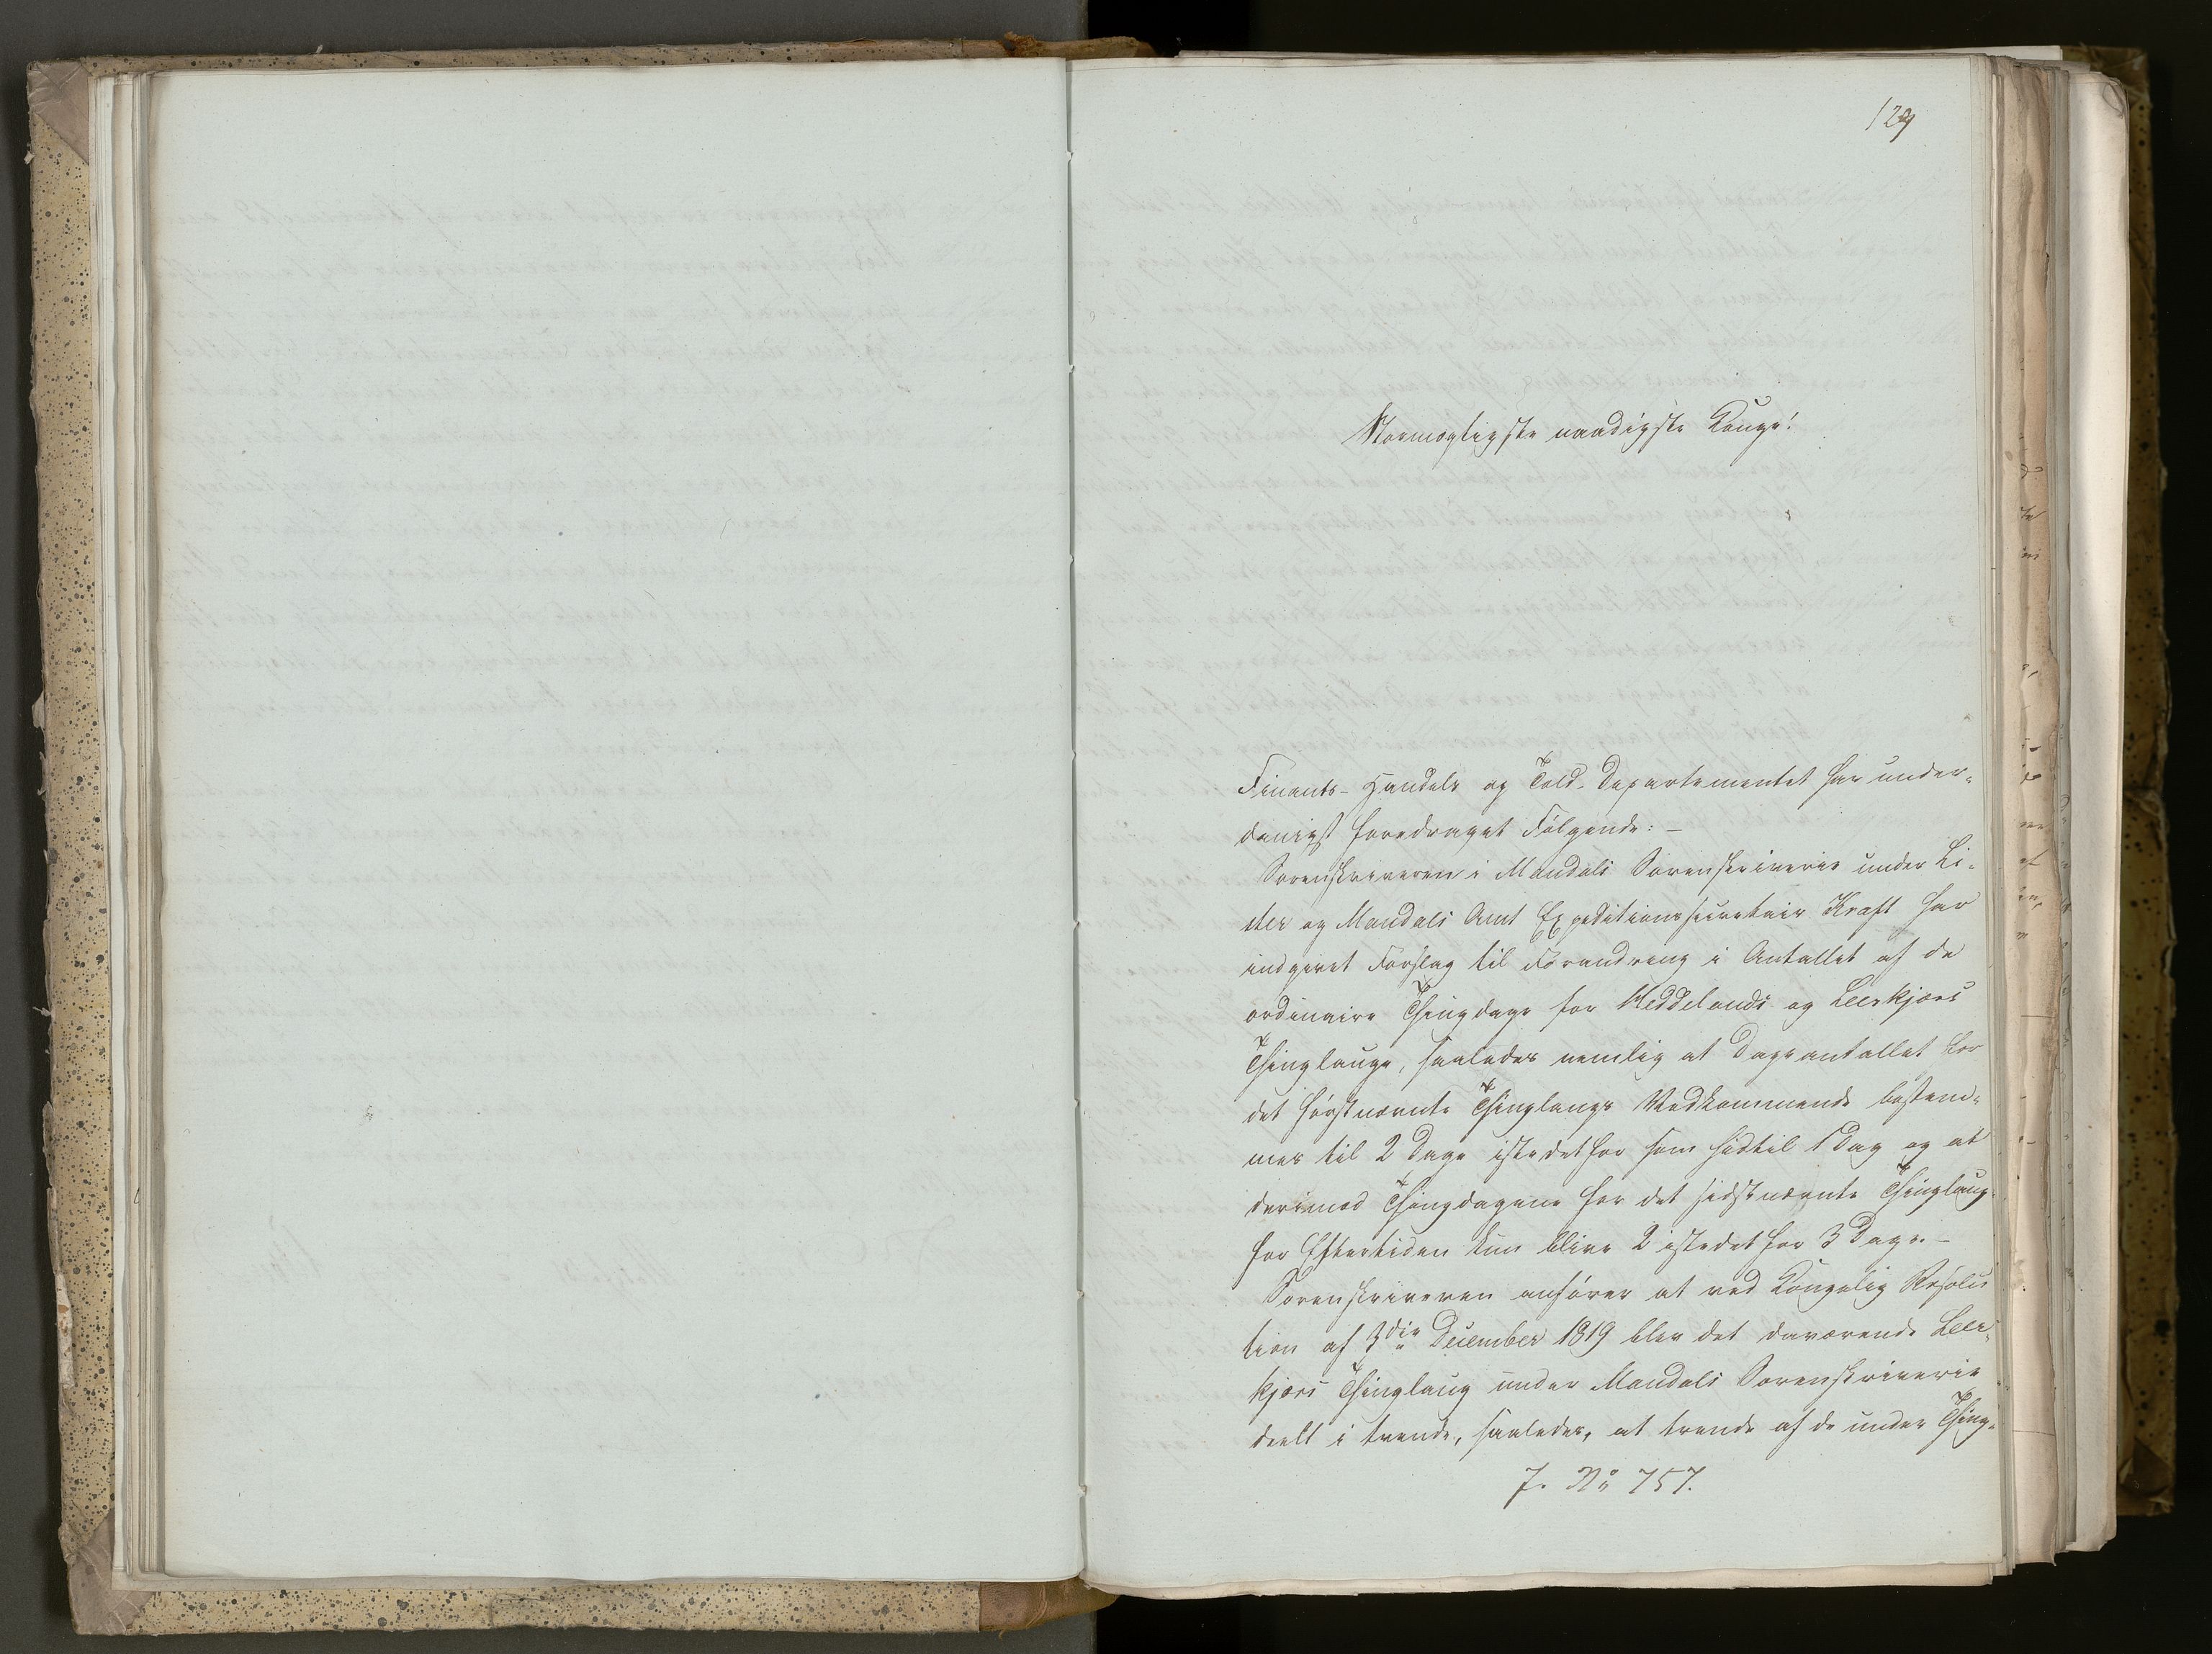 129
Stormægtigste naadigste Konge!
Finants- Handels og Told-Departementet har under-
danigst foredraget Følgende: -
Sorenskriveren i Mandals Sorenskriverie under Li-
ster og Mandals Amt Expeditionssecretair Kraft har
indgivet Forslag til Forandring i Antallet af de
ordinaire Thingdage for Meddelands og Leerkjærs
Thinglauge, saaledes nemlig at Dageantallet for
det førstnævnte Thinglaugs Vedkommende bestem-
mes til 2 Dage istedetfor som hidtil 1 Dag og at
derimod Thingdagene for det sidstnævnte Thinglaug
for Eftertiden kun blive 2 istedetfor 3 Dage. -
Sorenskriveren anfører at ved Kongelig Resolu
tion af 3die December 1819 blev det daværende Leer-
kjærs Thinglaug under Mandals Sorenskriverie
deelt i tvende, saaledes, at tvende af de under Thing-
J. No 757.